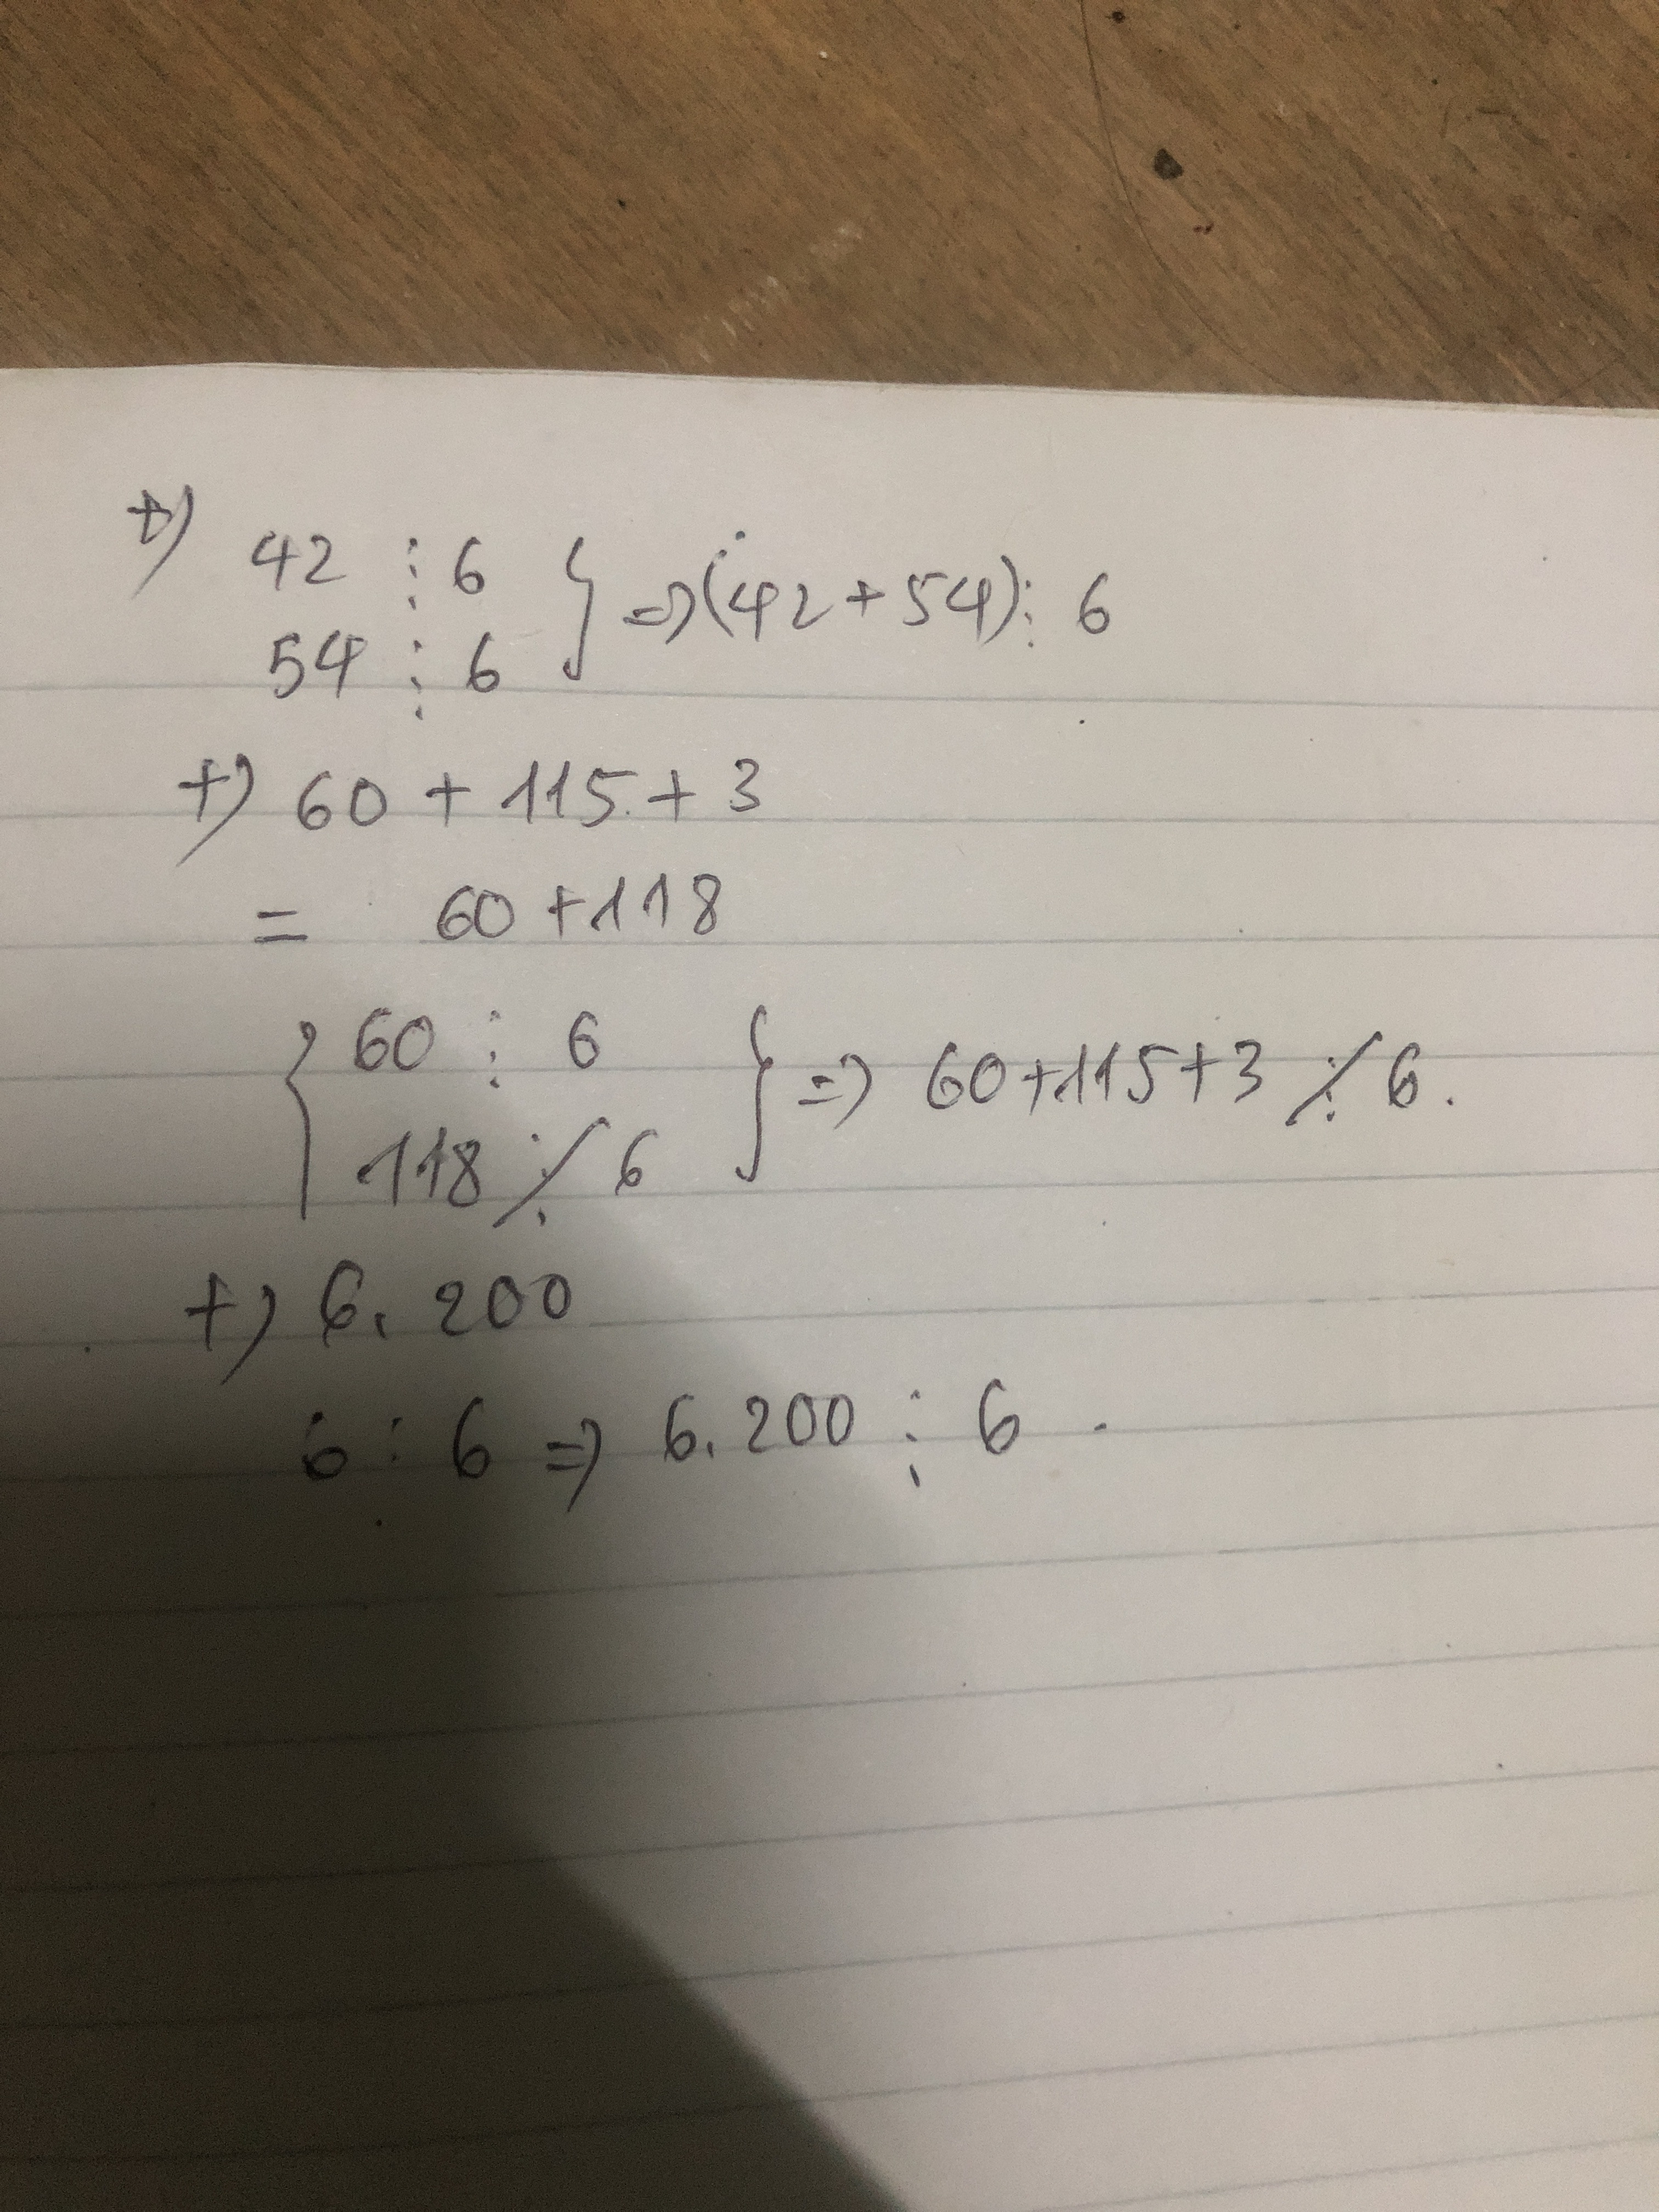 +) 42 ⋮ 6
54 ⋮ 6 } => (42 + 54) ⋮ 6
+) 60 + 115 + 3
= 60 + 118
{ 60 ⋮ 6
118 ⋮̸ 6 } => 60 + 115 + 3 ⋮̸ 6.
+) 6. 200
6 ⋮ 6 => 6. 200 ⋮ 6.